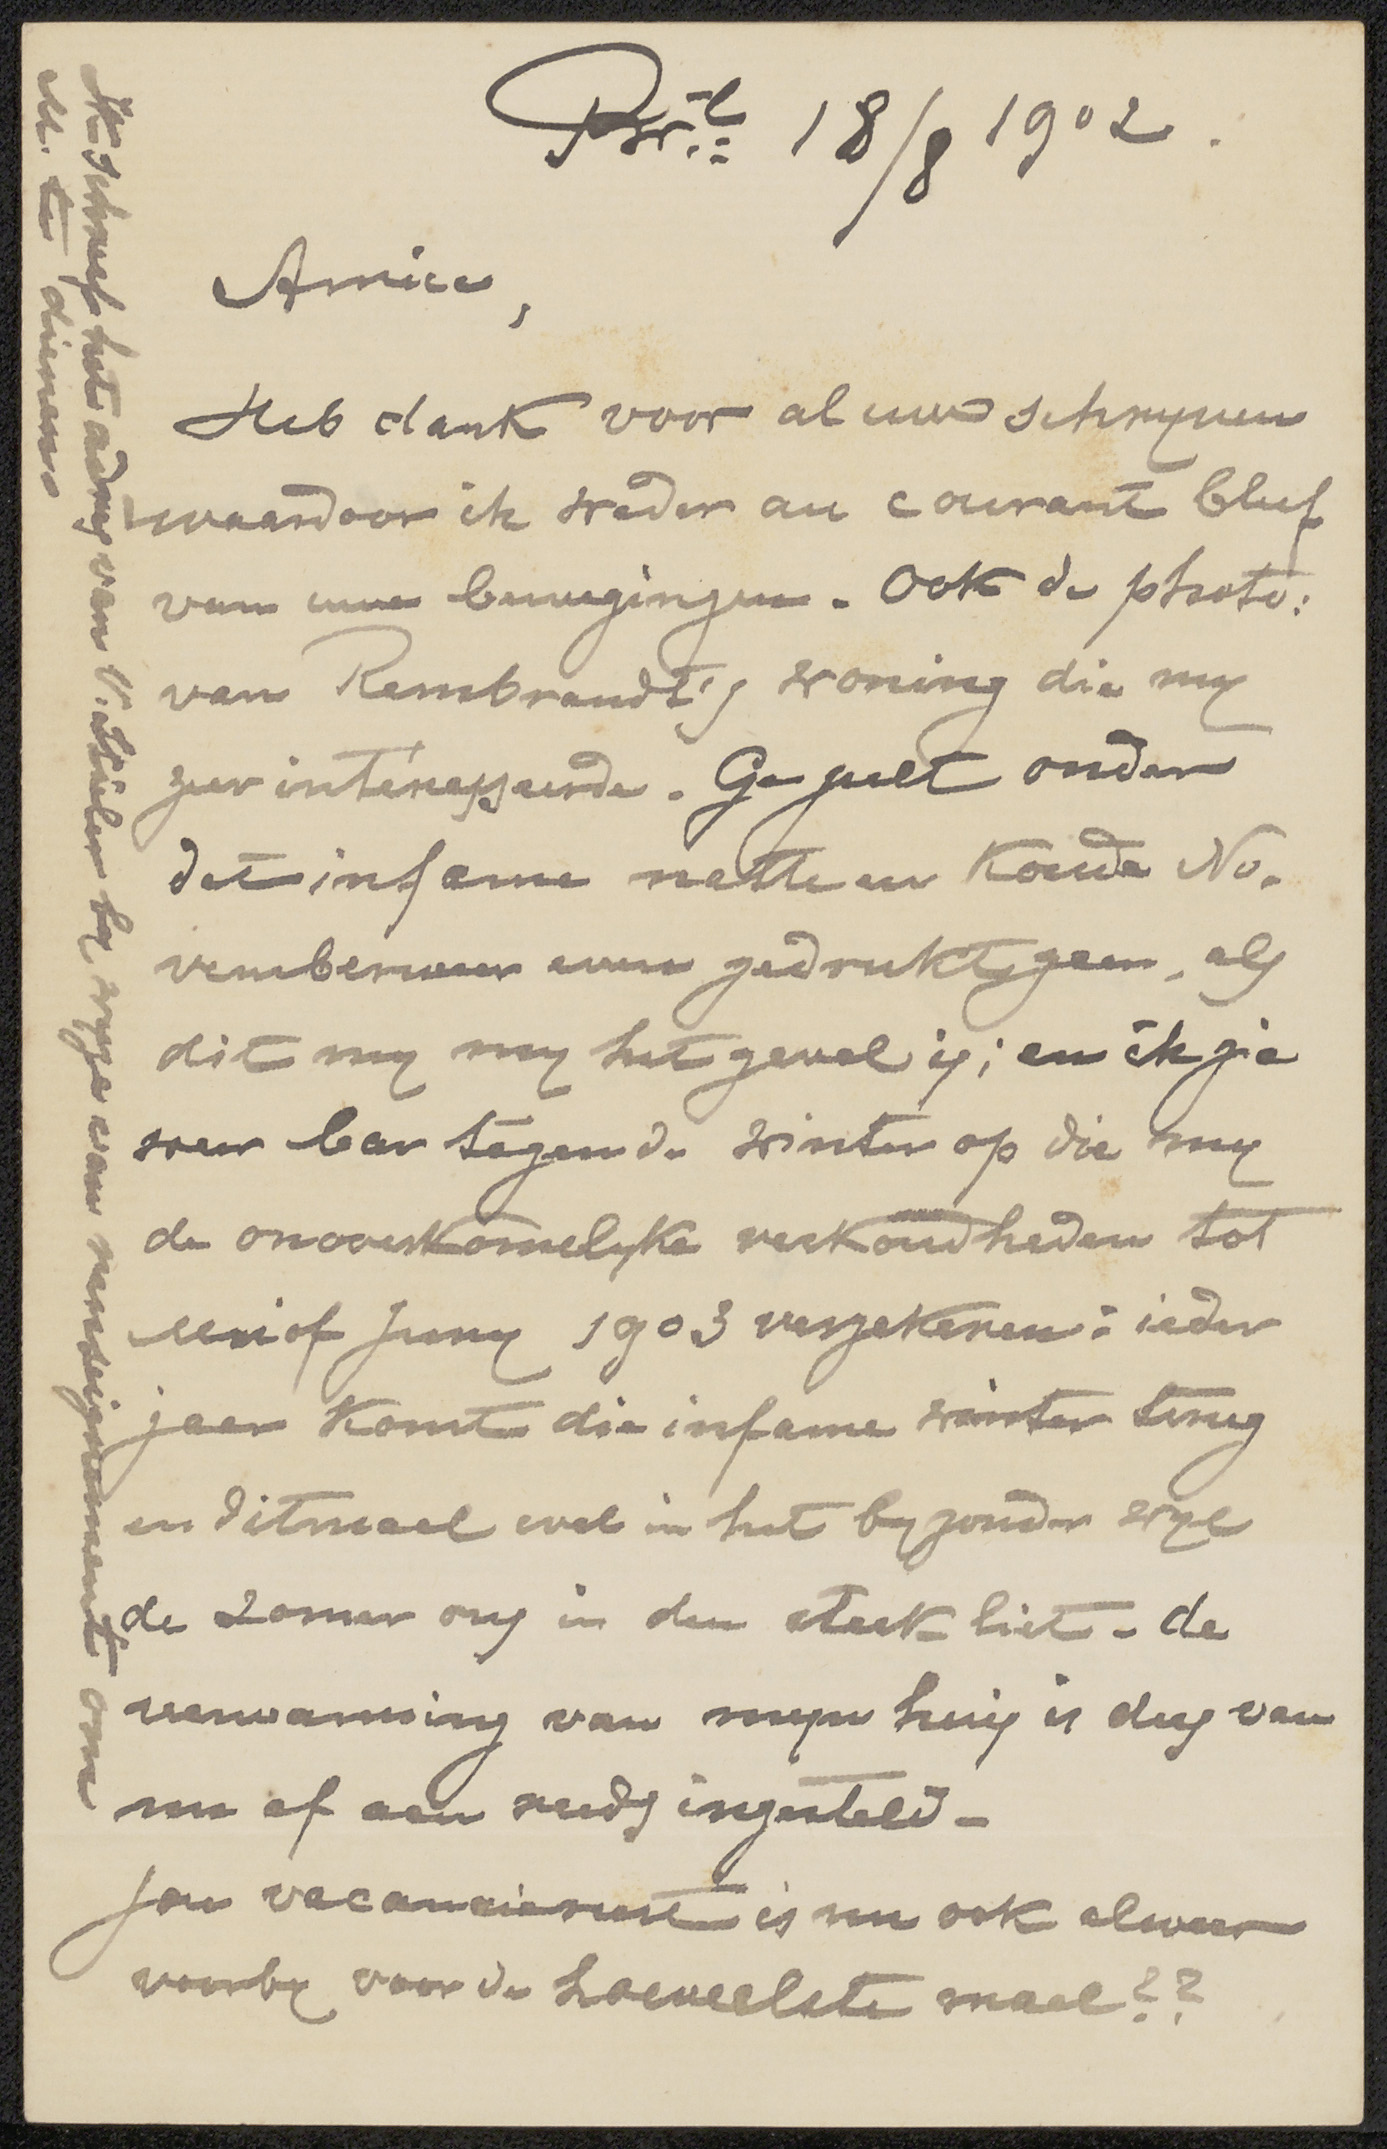 Br.l 18/8 1902.
Amice,
Heb dank voor al uw schryven
waardoor ik weder au courant bleef
van uwe bewegingen. Ook de photo:
van Rembrandt's woning die my
zeer intéresseerde. Ge zult onder
dat infame natte en koude No-
vemberweer even gedrukt gaan, als
dit my my het geval is; en ik zie
weer bar tegen de winter op die my
de onoverkomelyke verkoudheden tot
Mei of Juny 1903 verzekeren: ieder
jaar komt die infame winter terug
en ditmaal wel in het byzonder wyl
de zomer ons in den steek liet. de
verwarming van myn huis is dus van
nu af aan reeds ingesteld.
Jou vacancierust is nu ook alweer
voorby voor de hoeveelste maal??
Ik schreef het adres van V. by wyze van renseignement om
U. te dienen.